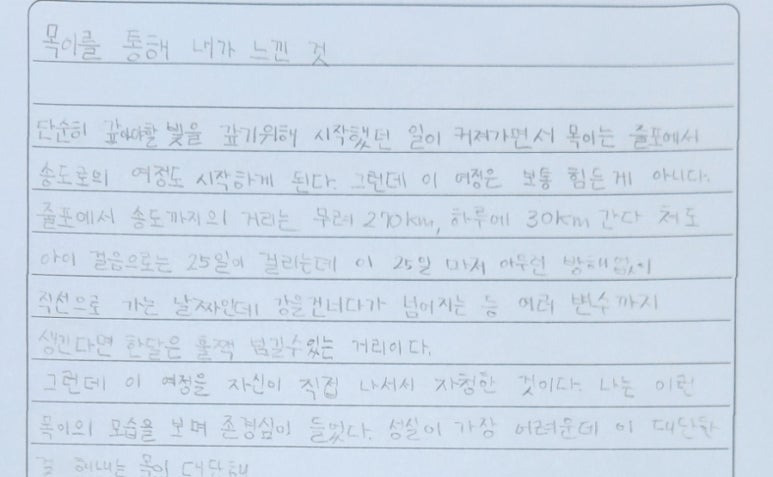 목이를 통해 내가 느낀 것
단순히 갚아야할 빛을 갚기위해 시작했던 일이 커져가면서 목이는 줄포에서
송도로의 여정도 시작하게 된다. 그런데 이 여정은 보통 힘든게 아니다.
줄포에서 송도까지의 거리는 무려 270km, 하루에 30km 간다 쳐도
아이 걸음으로는 25일이 걸리는데 이 25일 마저 아무런 방해없이
직선으로 가는 날짜인데 강을건너다가 넘어지는 등 여러 변수까지
생긴다면 한달은 훌쩍 넘길수있는 거리이다.
그런데 이 여정을 자신이 직접 나서서 자청한 것이다. 나는 이런
목이의 모습을 보며 존경심이 들었다. 성실이 가장 어려운데 이 대단한
걸 해내는 목이 대단해